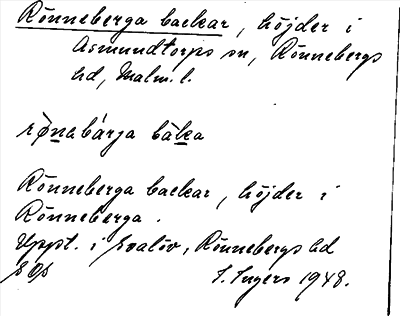 Rönneberga backar, höjder i
Asmundtorps sn, Rönnebergs
hd, Malm. l.
rø̀nabárja bàka
Rönneberga backar, höjder i
Rönneberga.
Uppt. i Svalöv, Rönnebergs hd
I. Ingers 1948.